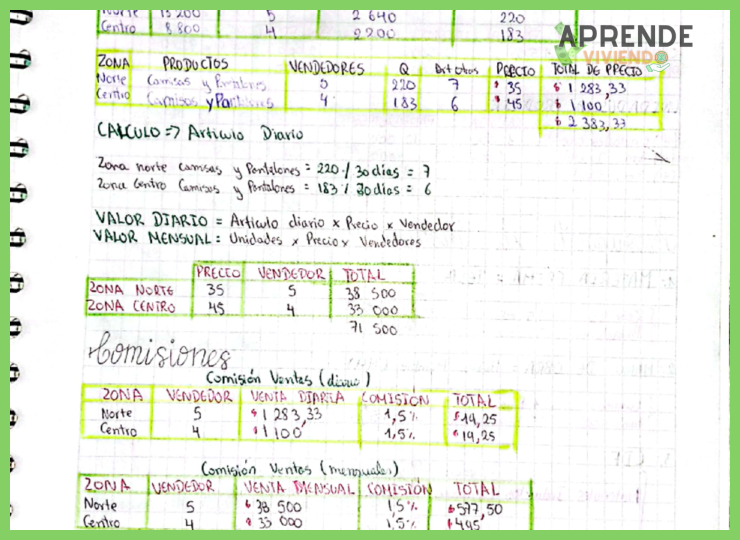 Norte 13 200 5 2 640 220
Centro 8 800 4 2200 183
APRENDE
VIVIENDO
ZONA PRODUCTOS VENDEDORES Q PRECIO TOTAL DE PRECIO
Norte Camisas y Pantalones 5 220 7 $ 35 $ 1 283,33
Centro Camisas y Pantalones 4 183 6 $ 45 $ 1 100
$ 2 383,33
CALCULO => Articulo Diario
Zona norte camisas y Pantalones = 220 / 30 dias = 7
Zona Centro Camisas y Pantalones = 183 / 30 dias = 6
VALOR DIARIO = Articulo diario x Precio x Vendedor
VALOR MENSUAL = Unidades x Precio x Vendedores
PRECIO VENDEDOR TOTAL
ZONA NORTE 35 5 38 500
ZONA CENTRO 45 4 33 000
71 500
Comisiones
Comisión Ventas (diario)
ZONA VENDEDOR VENTA DIARIA COMISIÓN TOTAL
Norte 5 $ 1 283,33 1,5% $ 19,25
Centro 4 $ 1 100 1,5% $ 19,25
Comisión Ventas (mensuales)
ZONA VENDEDOR VENTA MENSUAL COMISIÓN TOTAL
Norte 5 $ 38 500 1,5% $ 577,50
Centro 4 $ 33 000 1,5% $ 495